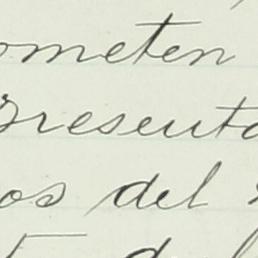 ometen
presenta
os del